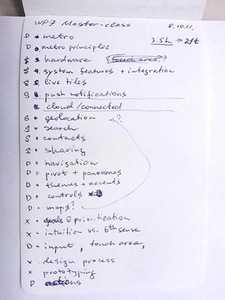 WP7 Master-class 8.10.11
D * metro 3.5h → 2 ft
D * metro principles
S * hardware
S * system features + integration
S * live tiles
S * push notifications
cloud/connected
S * geolocation ?
S * search
S * contacts
S * sharing
D * navigation
D * pivot + panoramas
D * themes + accents
D * controls
D * maps?
x * prioritization
x * intuition vs. 6th sense
D * input, touch area,
x * design process
x * prototyping
D